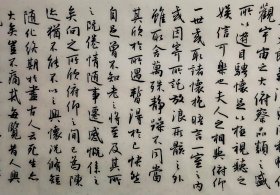 觀宇宙之大俯察品類之盛
所以遊目騁懷足以極視聽之
娛信可樂也夫人之相與俯仰
一世或取諸懷抱晤言一室之內
或因寄所託放浪形骸之外
雖取舍萬殊靜躁不同當
其欣於所遇暫得於己快然
自足曾不知老之將至及其所
之既惓情隨事遷感慨係之
矣向之所欣俯仰之間已為陳
迹猶不能不以之興懷況脩短
隨化終期於盡古人云死生亦
大矣豈不痛哉每覽昔人興